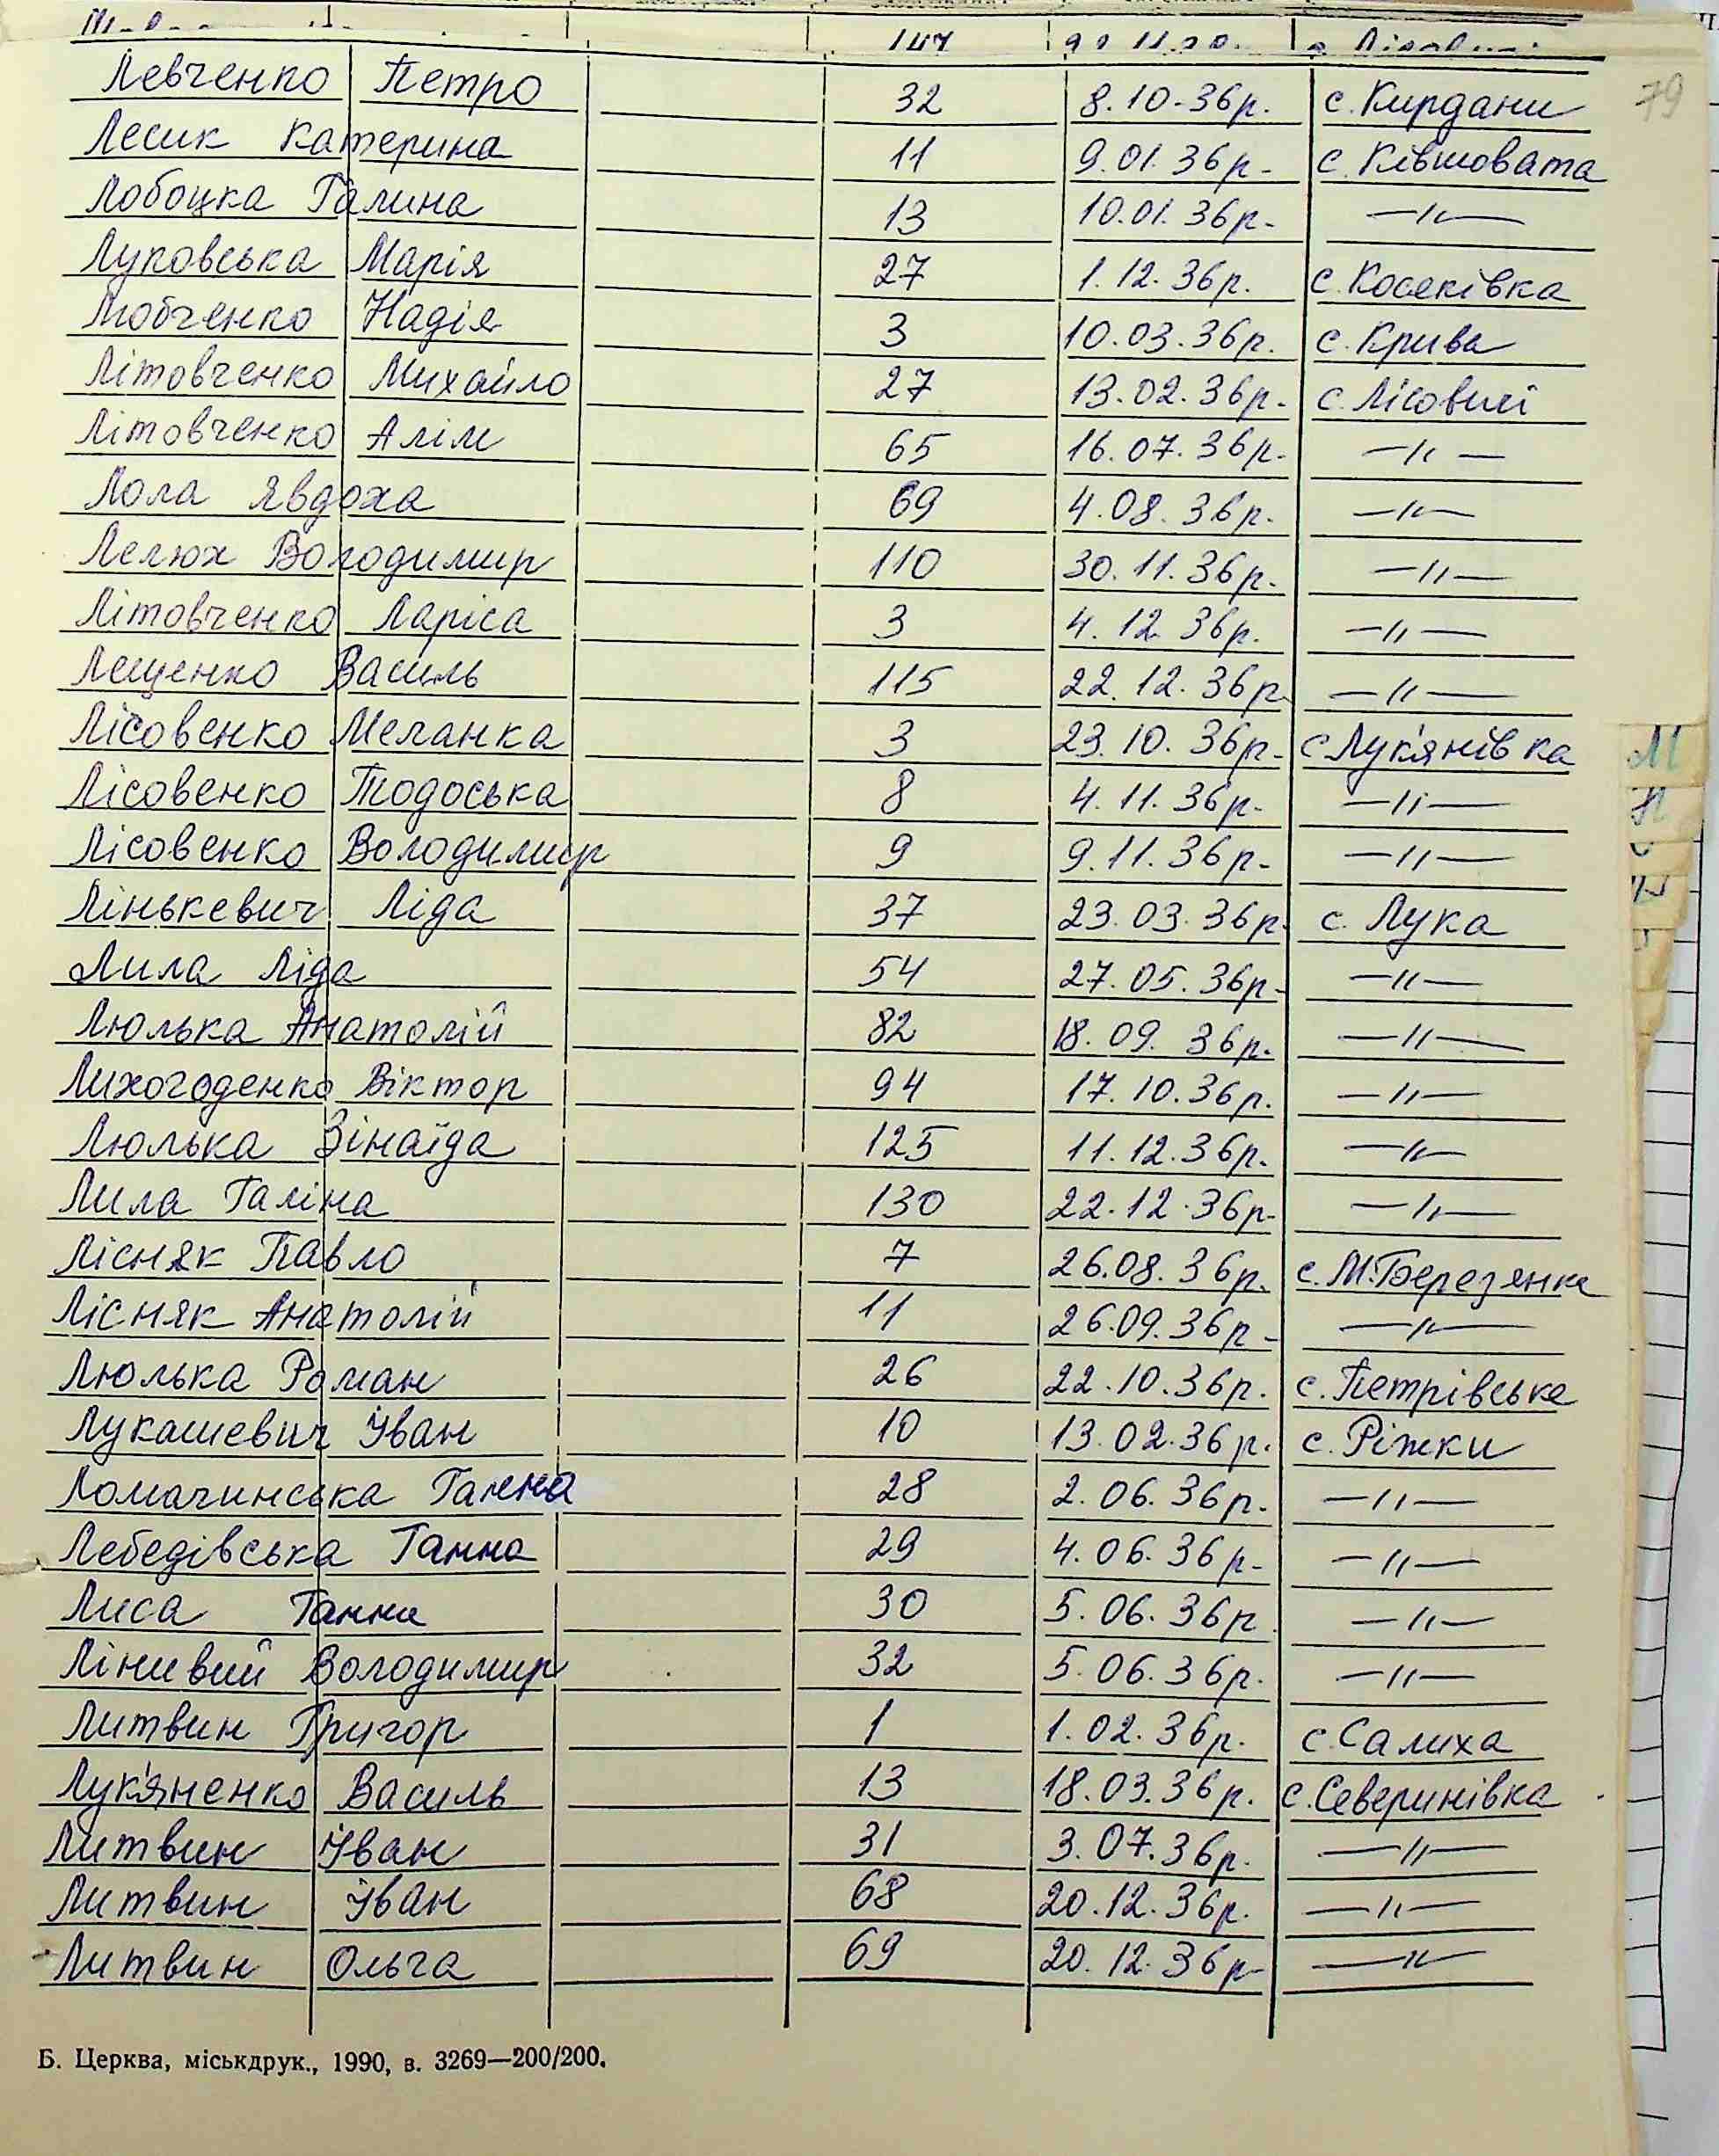 147
Левченко Петро 32 8.10-36р. с. Кирдани 79
Лесик Катерина 11 9.01.36р- с. Ківшовата
Лобоцка Галина 13 10.01.36р- —"—
Луковська Марія 27 1.12.36р. с. Косяківка
Любченко Надія 3 10.03.36р. с. Крива
Літовченко Михайло 27 13.02.36р- с. Лісовичі
Літовченко Алім 65 16.07.36р- —"—
Лола Явдоха 69 4.08.36р- —"—
Лелюх Володимир 110 30.11.36р- —"—
Літовченко Ларіса 3 4.12.36р. —"—
Лещенко Василь 115 22.12.36р —"—
Лісовенко Меланка 3 23.10.36р- с Лук'янівка
Лісовенко Тодоська 8 4.11.36р- —"—
Лісовенко Володимир 9 9.11.36р- —"—
Лінькевич Ліда 37 23.03.36р с. Лука
Лила Ліда 54 27.05.36р- —"—
Люлька Анатолій 82 18.09.36р. —"—
Лихогоденко Віктор 94 17.10.36р. —"—
Люлька Зінаїда 125 11.12.36р. —"—
Лила Галіна 130 22.12.36р- —"—
Лісняк Павло 7 26.08.36р. с. М.Березянка
Лісняк Анатолій 11 26.09.36р- —"—
Люлька Роман 26 22.10.36р. с. Петрівське
Лукашевич Іван 10 13.02.36р. с. Ріжки
Ломачинська Ганна 28 2.06.36р. —"—
Лебедівська Ганна 29 4.06.36р- —"—
Лиса Ганна 30 5.06.36р —"—
Лінивий Володимир 32 5.06.36р. —"—
Литвин Григор 1 1.02.36р. с. Салиха
Лук'яненко Василь 13 18.03.36р. с. Северинівка
Литвин Іван 31 3.07.36р. —"—
Литвин Іван 68 20.12.36р. —"—
Литвин Ольга 69 20.12.36р- —"—
М
Н
Б. Церква, міськдрук., 1990, в. 3269—200/200.